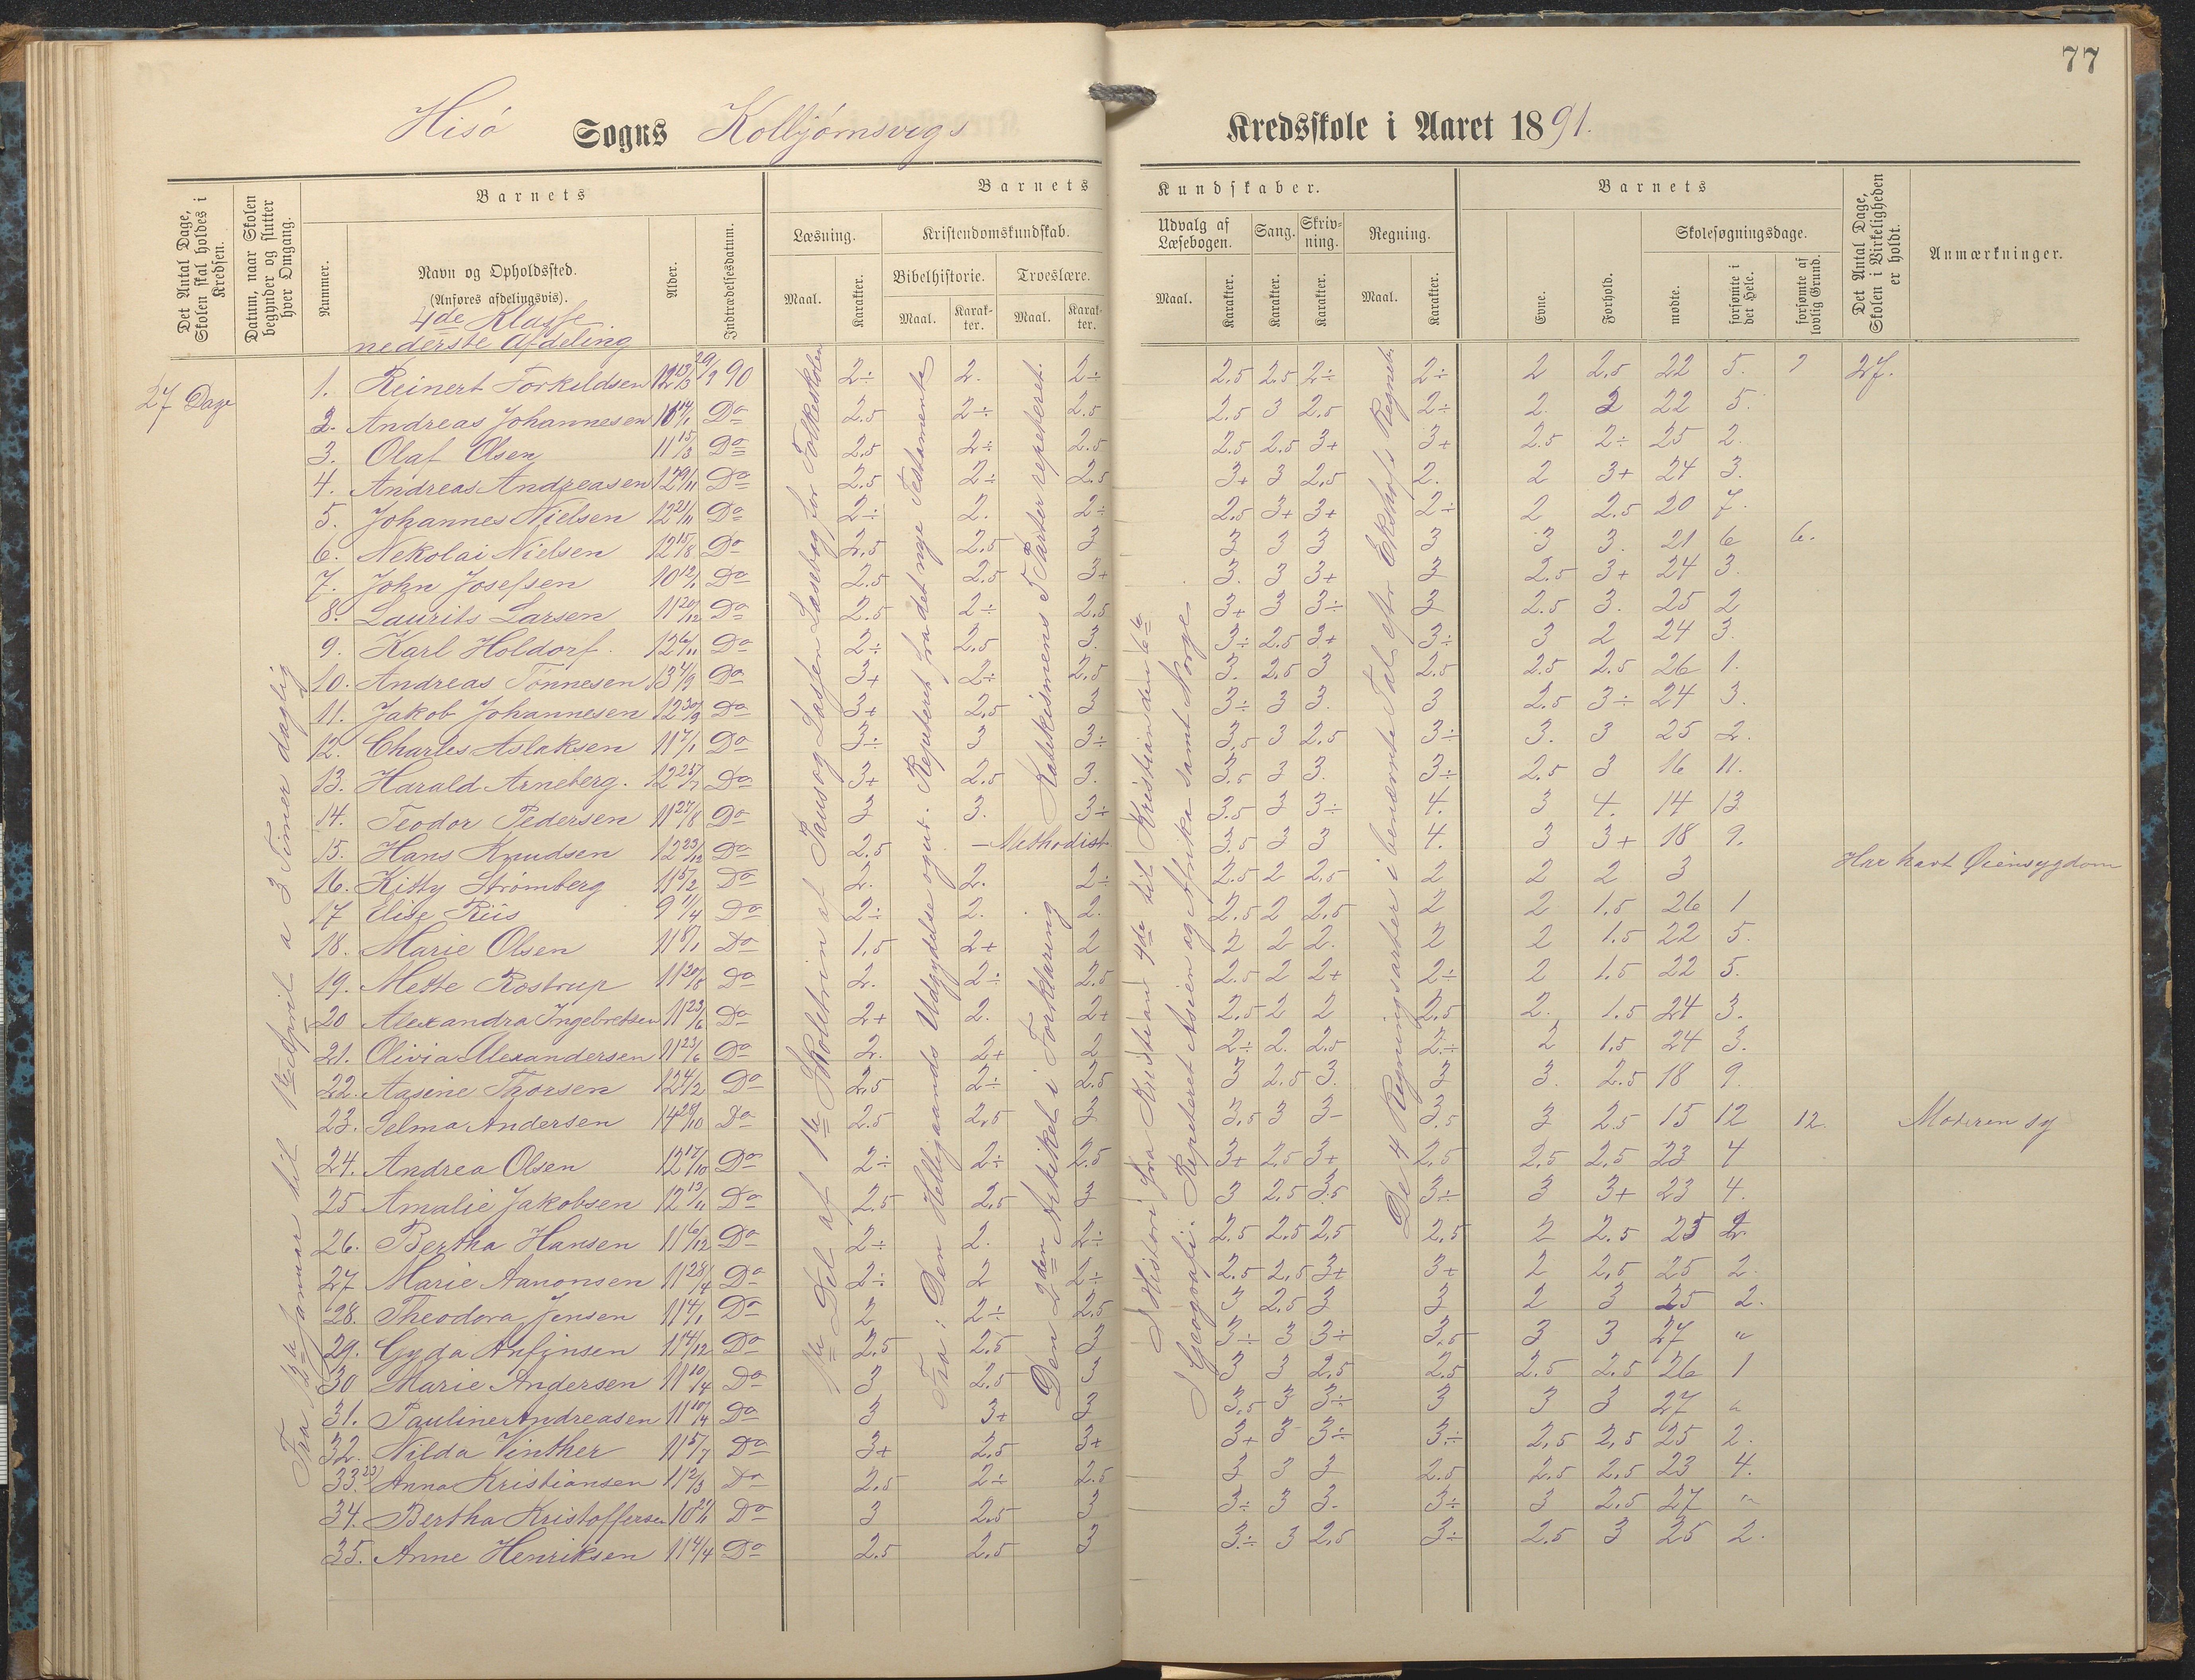 77
Hisö Sogns Kolbjørnsvigs Kredsskole i Aaret 1891.
Det Antal Dage, Skolen skal holdes i Kredsen.
Datum, naar Skolen begynder og slutter hver Omgang.
Barnets
Nummer.
Navn og Opholdssted.
(Anføres afdelingsvis).
Alder.
Indtrædelsesdatum.
Barnets Kundskaber.
Læsning.
Maal.
Karakter.
Kristendomskundskab.
Bibelhistorie.
Maal.
Karakter.
Troeslære.
Maal.
Karakter.
Udvalg af Læsebogen.
Maal.
Karakter.
Sang.
Karakter.
Skrivning.
Karakter.
Regning.
Maal.
Karakter.
Barnets
Evne.
Forhold.
Skolesøgningsdage.
mødte.
forsømte i det Hele.
forsømte af lovlig Grund.
Det Antal Dage, Skolen i Virkeligheden er holdt.
Anmærkninger.
4de Klasse
nederste Afdeling
27 Dage
Fra 12te Januar til 1ste April a 3 Timer daglig
1ste Del af 1ste Skoletrin af Pauss og Lassen Læsebog for Folkeskolen
Fra: Den Helligaands Udgydelse og ut. Repeteret fra det nye Testamente
Den 2den Artikel i Forklaring Katekismens 5 Parter repeteret.
I Historie fra Kristian 4de til Kristian den 6te
I Geografi: Repeteret Asien og Afrika samt Norge
De 4 Regningsarter i benævnte Tal efter Ekshofs Regneb.
1. Reinert Torkildsen 12 13/3 29/9 90 2÷ 2. 2÷ 2.5 2.5 2÷ 2÷ 2 2.5 22 5. 27.
2. Andreas Johannesen Do 2.5 2÷ 2.5 2.5 3 2.5 2÷ 2. 2 22 5.
3. Olaf Olsen 11 15/3 Do 2.5 2÷ 2.5 2.5 2.5 3+ 3+ 2.5 2÷ 25 2.
4. Andreas Andreasen 12 29/11 Do 2.5 2÷ 2.5 3+ 3 2.5 2. 2 3+ 24 3.
5. Johannes Nielsen 12 21/11 Do 2÷ 2. 2÷ 2.5 3+ 3+ 2÷ 2 2.5 20 7.
6. Nekolai Nielsen 12 15/8 Do 2.5 2.5 3 3 3 3 3 3 3. 21 6 6.
7. John Josefsen 10 12/1 Do 2.5 2.5 3+ 3. 3 3+ 3 2.5 3+ 24 3.
8. Laurits Larsen 11 20/12 Do 2.5 2÷ 2.5 3+ 3 3÷ 3 2.5 3. 25 2
9. Karl Holdorf. 12 6/11 Do 2÷ 2.5 3. 3÷ 2.5 3+ 3÷ 3 2 24 3.
10. Andreas Tönnesen 13 4/9 Do 3+ 2÷ 2.5 3. 2.5 3 2.5 2.5 2.5 26 1.
11. Jakob Johannesen 12 30/9 Do 3+ 2.5 3 3÷ 3 3. 3 2.5 3÷ 24 3.
12. Charles Aslaksen 11 7/1 Do 3÷ 3 3÷ 3.5 3 2.5 3÷ 3. 3 25 2.
13. Harald Arneberg. 12 25/7 Do 3+ 2.5 3. 3.5 3 3. 3÷ 2.5 3 16 11.
14. Teodor Pedersen 11 27/8 Do 3 3. 3÷ 3.5 3 3÷ 4. 3 4. 14 13
15. Hans Knudsen 12 23/12 Do 2.5 - Methodist 3.5 3 3 4. 3 3+ 18 9.
16. Kitty Strømberg 11 5/2 Do 2. 2. 2÷ 2.5 2 2.5 2 2 2 3 Har havt Øiensygdom
17 Elise Riis 9 1/4 Do 2÷ 2. 2. 2.5 2 2.5 2 2 1.5 26 1
18. Marie Olsen 11 8/1 Do 1.5 2+ 2 2 2 2. 2 2 1.5 22 5.
19. Mette Rostrup 11 20/8 Do 2. 2÷ 2.5 2.5 2 2+ 2÷ 2 1.5 22 5.
20 Alexandra Ingebretsen 11 23/6 Do 2+ 2. 2+ 2.5 2 2 2.5 2. 1.5 24 3.
21. Olivia Alexandersen 11 23/6 Do 2. 2+ 2 2÷ 2. 2.5 2÷ 2 1.5 24 3.
22. Aasine Thorsen 12 4/2 Do 2.5 2÷ 2.5 3 2.5 3. 3 3. 2.5 18 9.
23. Selma Andersen 14 28/10 Do 2.5 2.5 3 3.5 3 3- 3.5 3 2.5 15 12 12. Moderen sy
24. Andrea Olsen 12 17/10 Do 2÷ 2÷ 2.5 3+ 2.5 3+ 2.5 2.5 2.5 23 4
25 Amalie Jakobsen 12 19/11 Do 2.5 2.5 3 3 2.5 3.5 3÷ 3 3+ 23 4.
26. Bertha Hansen 11 6/12 Do 2÷ 2. 2÷ 2.5 2.5 2.5 2.5 2 2.5 25 2.
27 Marie Aanonsen 11 28/4 Do 2÷ 2 2÷ 2.5 2.5 3+ 3+ 2 2.5 25 2.
28. Theodora Jensen 11 4/1 Do 2 2÷ 2.5 3 2.5 3 3 2 3 25 2.
29. Gyda Anfinsen 11 4/12 Do 2.5 2.5 3 3÷ 3 3÷ 3.5 3 3 27 "
30 Marie Andersen 11 10/4 Do 3 2.5 3 3 3 2.5 2.5 2.5 2.5 26 1
31. Pauline Andreasen 11 10/4 Do 3 3+ 3 3.5 3 3÷ 3 3 3 27 "
32. Nilda Vinther 11 5/7 Do 3+ 2.5 3+ 3+ 3 3÷ 3÷ 2.5 2.5 25 2.
33. Anna Kristiansen 11 2/3 Do 2.5 2÷ 2.5 3 3 3 2.5 2.5 2.5 23 4.
34. Bertha Kristoffersen Do 3 2.5 3 3÷ 3 3- 3÷ 3 2.5 27 "
35. Anne Henriksen 11 4/4 Do 2.5 2.5 3 3÷ 3 2.5 3÷ 2.5 3 25 2.